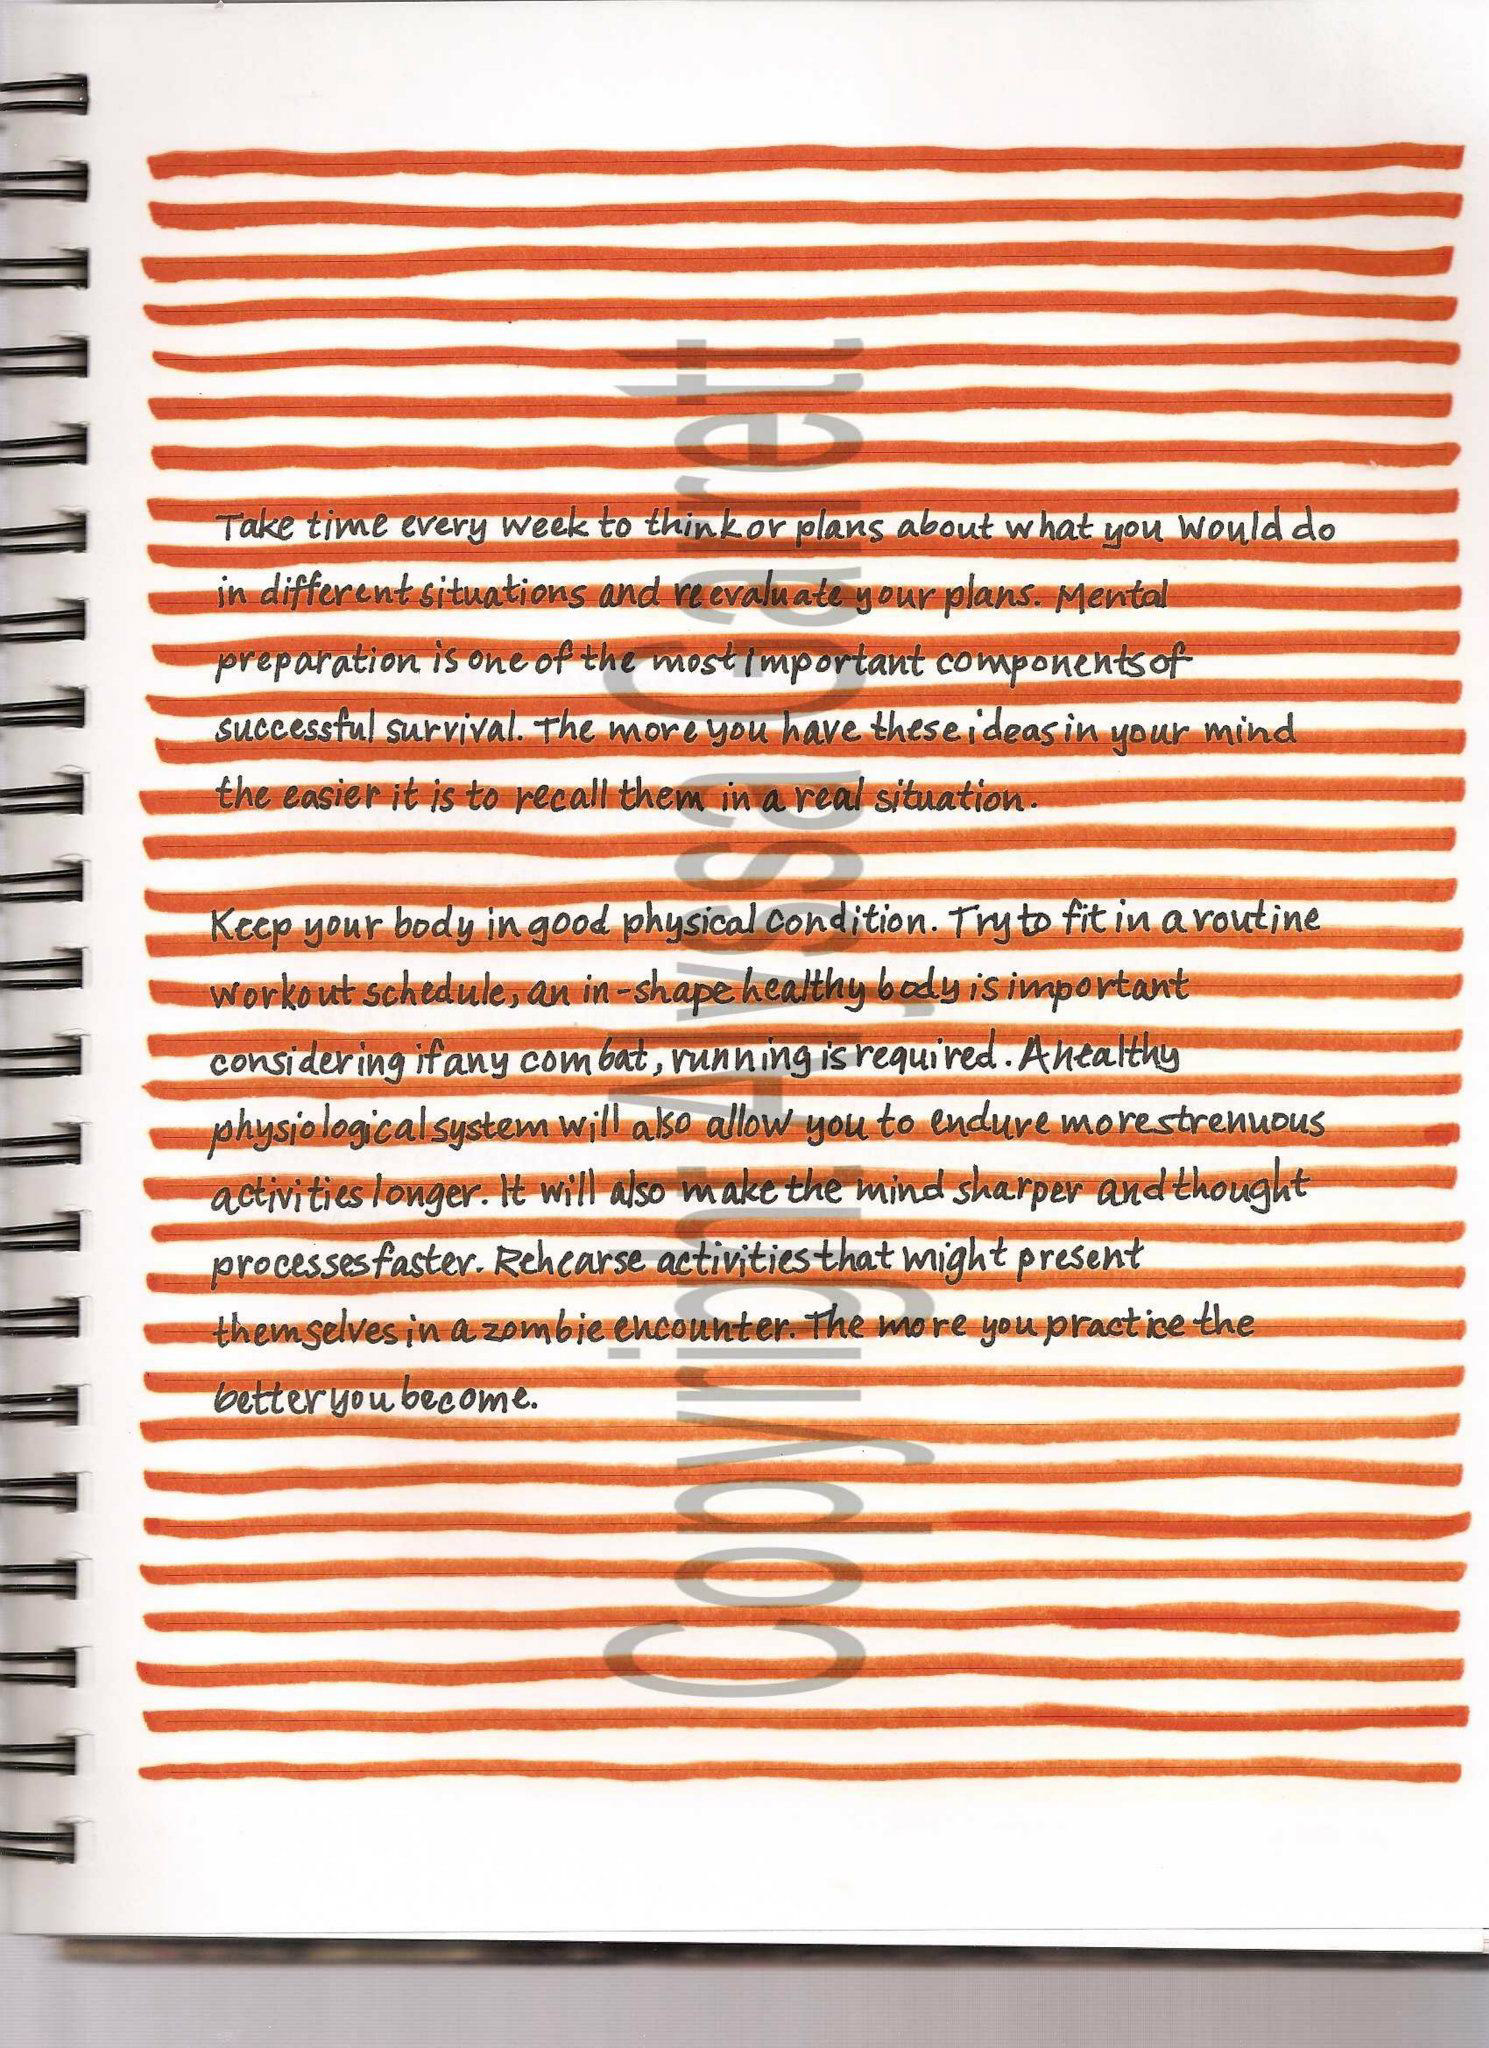 Take time every week to think or plans about what you would do
in different situations and reevaluate your plans. Mental
preparation is one of the most important components of
successful survival. The more you have these ideas in your mind
the easier it is to recall them in a real situation.
Keep your body in good physical condition. Try to fit in a routine
workout schedule, an in-shape healthy body is important
considering if any combat, running is required. A healthy
physiological system will also allow you to endure more strenuous
activities longer. It will also make the mind sharper and thought
processes faster. Rehearse activities that might present
themselves in a zombie encounter. The more you practice the
better you become.
Copyright Alysa Garret